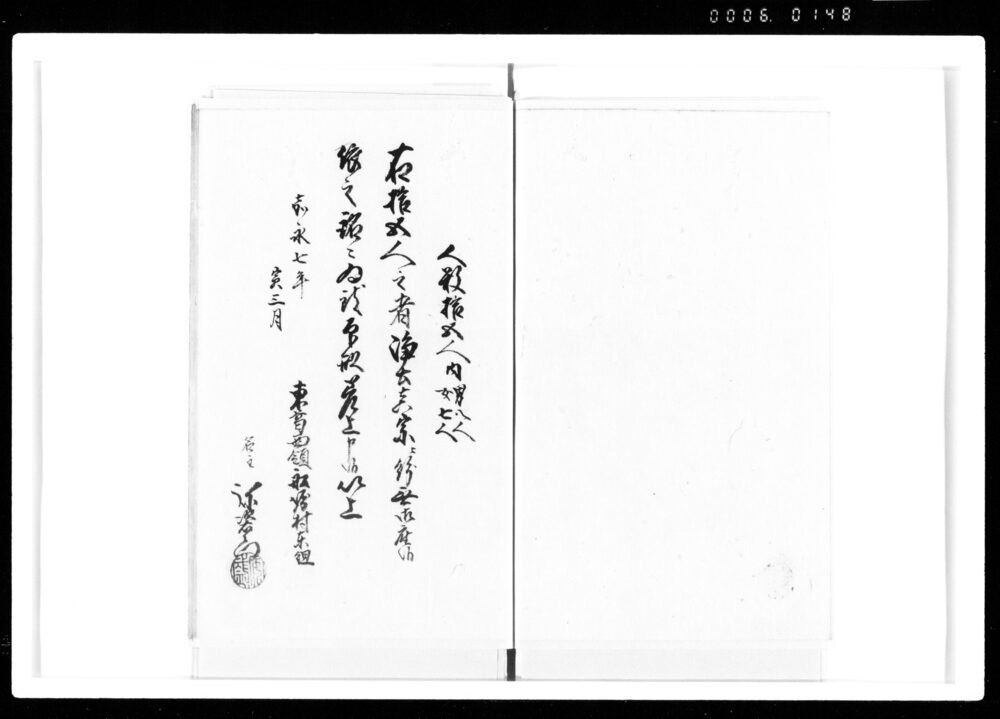 0006. 0148
人数拾五人内男八人
女七人
右拾五人之者浄土真宗ニ紛無御座候
依之銘々為致印形差上申候以上
嘉永七年
寅三月
東葛西領船堀村東組
名主